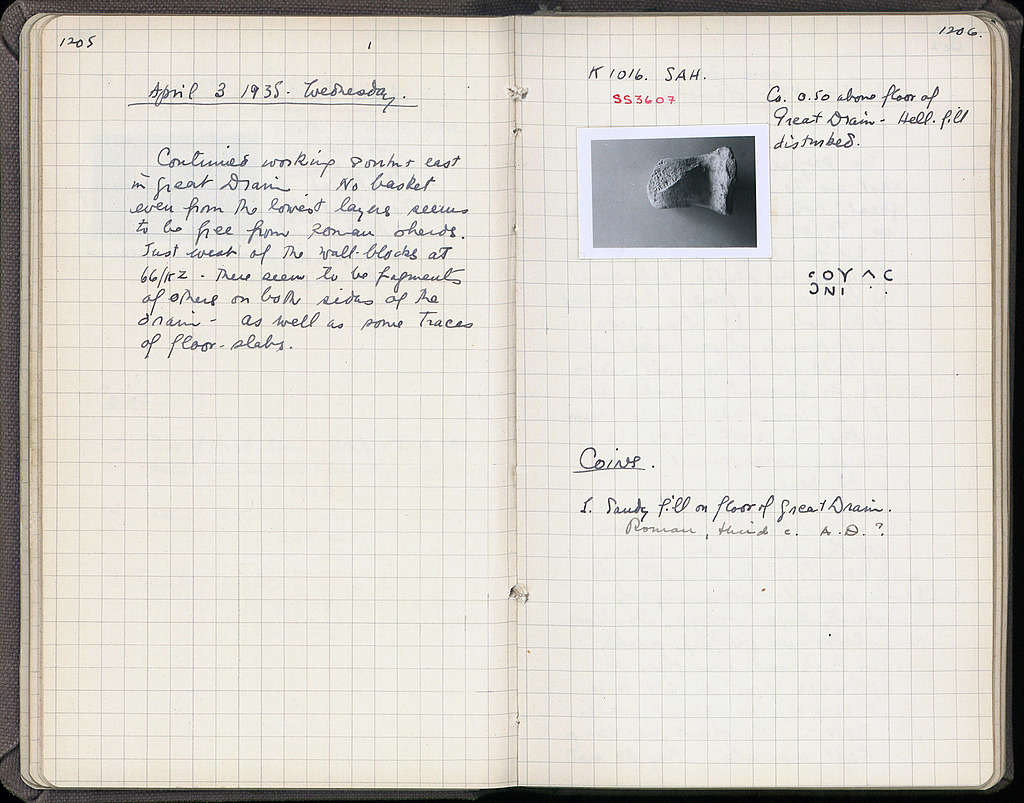 1205
1
April 3 1935. Wednesday.
Continued working south east
in Great Drain. No basket
even from the lowest layers seems
to be free from Roman sherds.
Just west of the wall-blocks at
66/ΚΖ - there seem to be fragments
of others on both sides of the
drain - as well as some traces
of floor-slabs.
1206.
K 1016. SAH.
SS3607
Ca. 0.50 above floor of
Great Drain - Hell. fill
disturbed.
ϲΟΥΛϹ
ƆΝΙ
Coins.
1. Sandy fill on floor of Great Drain.
Roman, third c. A.D.?